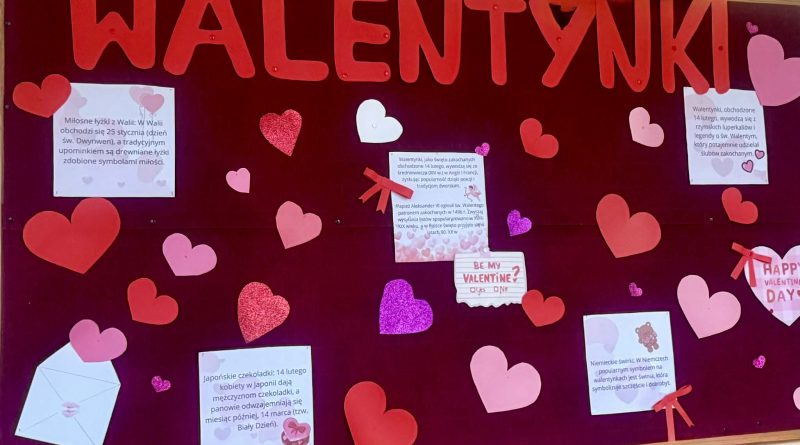 WALENTYNKI
Miłosne łyżki z Walii: W Walii
obchodzi się 25 stycznia (dzień
św. Dwynwen), a tradycyjnym
upominkiem są drewniane łyżki
zdobione symbolami miłości.
Walentynki, jako święto zakochanych
obchodzone 14 lutego, wywodzą się ze
średniowiecza (XIV w.) w Anglii i Francji,
zyskując popularność dzięki poezji i
tradycjom dworskim.
Papież Aleksander VI ogłosił św. Walentego
patronem zakochanych w 1496 r. Zwyczaj
wysyłania listów spopularyzowano w
XIX wieku, a w Polsce święto przyjęło się w
latach 90. XX w
BE MY
VALENTINE?
YES NO
Walentynki, obchodzone
14 lutego, wywodzą się z
rzymskich luperkaliów i
legendy o św. Walentym,
który potajemnie udzielał
ślubów zakochanym.
HAPPY
VALENTINE
DAY
Japońskie czekoladki: 14 lutego
kobiety w Japonii dają
mężczyznom czekoladki, a
panowie odwzajemniają się
miesiąc później, 14 marca (tzw.
Biały Dzień).
Niemieckie świnki: W Niemczech
popularnym symbolem na
walentynkach jest świnia, która
symbolizuje szczęście i dobrobyt.